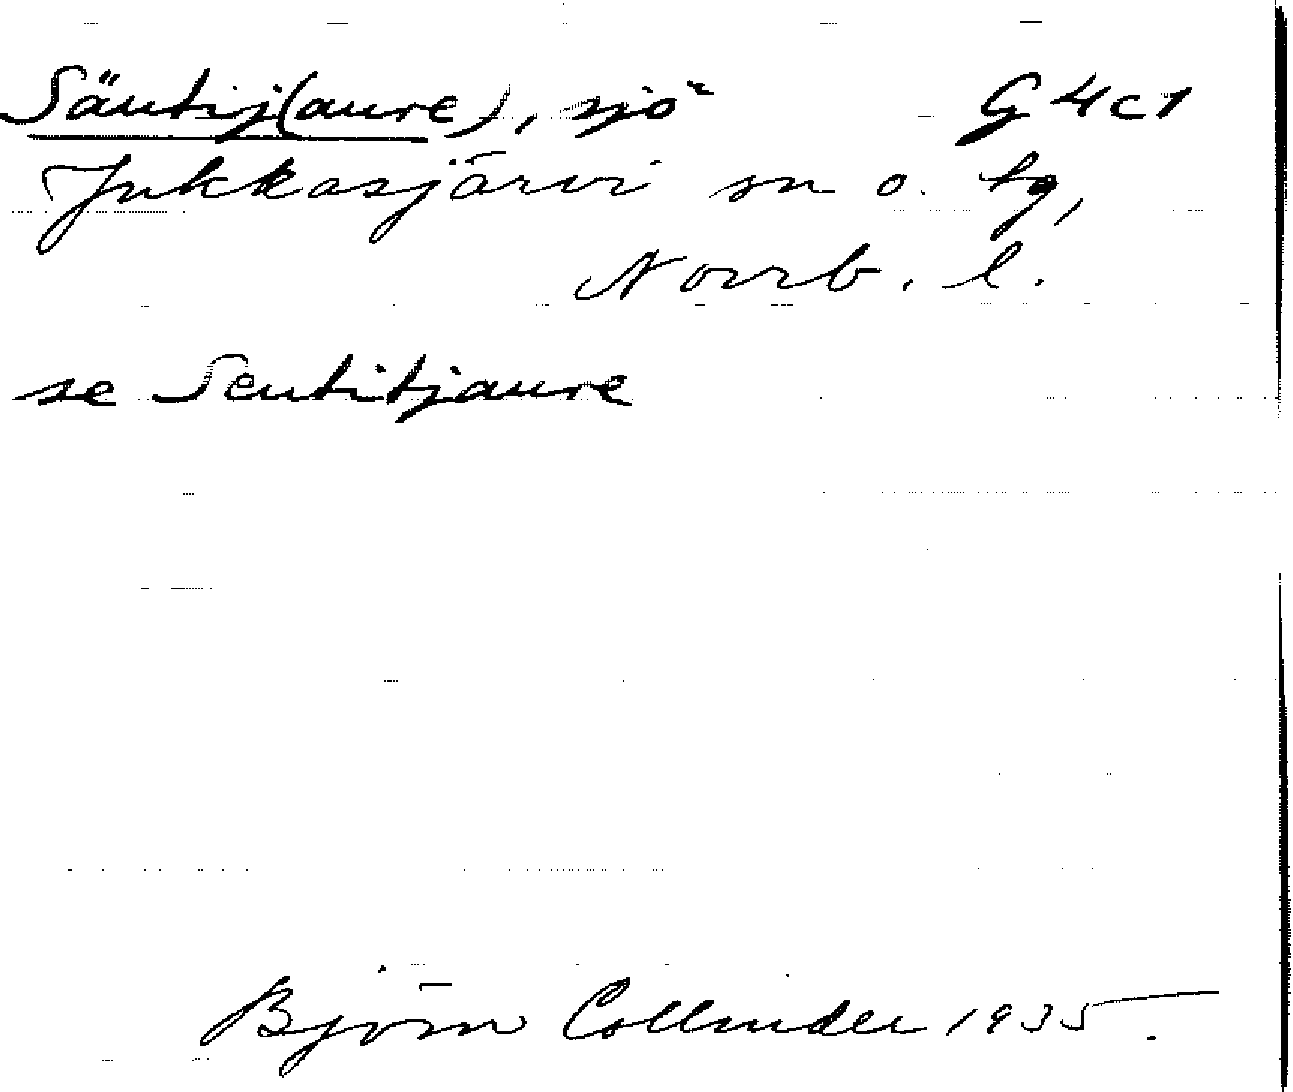 Säutij(aure), sjö G4c1
Jukkasjärvi sn o. tg,
Norrb. l.
se Seutitjaure
Björn Collinder 1935.